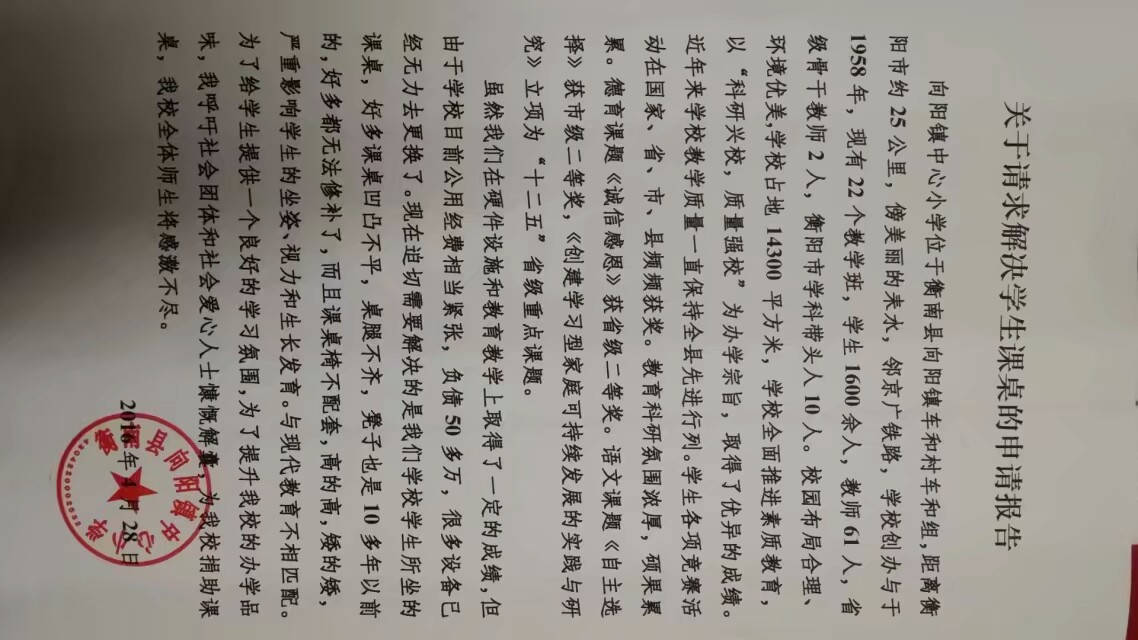 关于请求解决学生课桌的申请报告
向阳镇中心小学位于衡南县向阳镇车和村车和组,距离衡
阳市约 25 公里，傍美丽的耒水，邻京广铁路，学校创办与于
1958 年，现有 22 个教学班，学生 1600 余人，教师 61 人，省
级骨干教师 2 人，衡阳市学科带头人 10 人。校园布局合理、
环境优美,学校占地 14300 平方米，学校全面推进素质教育，
以“科研兴校，质量强校”为办学宗旨，取得了优异的成绩。
近年来学校教学质量一直保持全县先进行列。学生各项竞赛活
动在国家、省、市、县频频获奖。教育科研氛围浓厚，硕果累
累。德育课题《诚信感恩》获省级二等奖。语文课题《自主选
择》获市级二等奖，《创建学习型家庭可持续发展的实践与研
究》立项为“十二五”省级重点课题。
虽然我们在硬件设施和教育教学上取得了一定的成绩，但
由于学校目前公用经费相当紧张，负债 50 多万，很多设备已
经无力去更换了。现在迫切需要解决的是我们学校学生所坐的
课桌，好多课桌凹凸不平，桌腿不齐，凳子也是 10 多年以前
的，好多都无法修补了，而且课桌椅不配套，高的高，矮的矮，
严重影响学生的坐姿、视力和生长发育。与现代教育不相匹配。
为了给学生提供一个良好的学习氛围,为了提升我校的办学品
味，我呼吁社会团体和社会爱心人士慷慨解囊，为我校捐助课
桌，我校全体师生将感激不尽。
2016 年 4 月 28 日
衡南县向阳镇中心小学